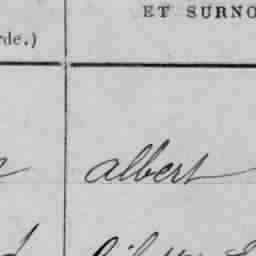 ET SURNO
rde.)
albert